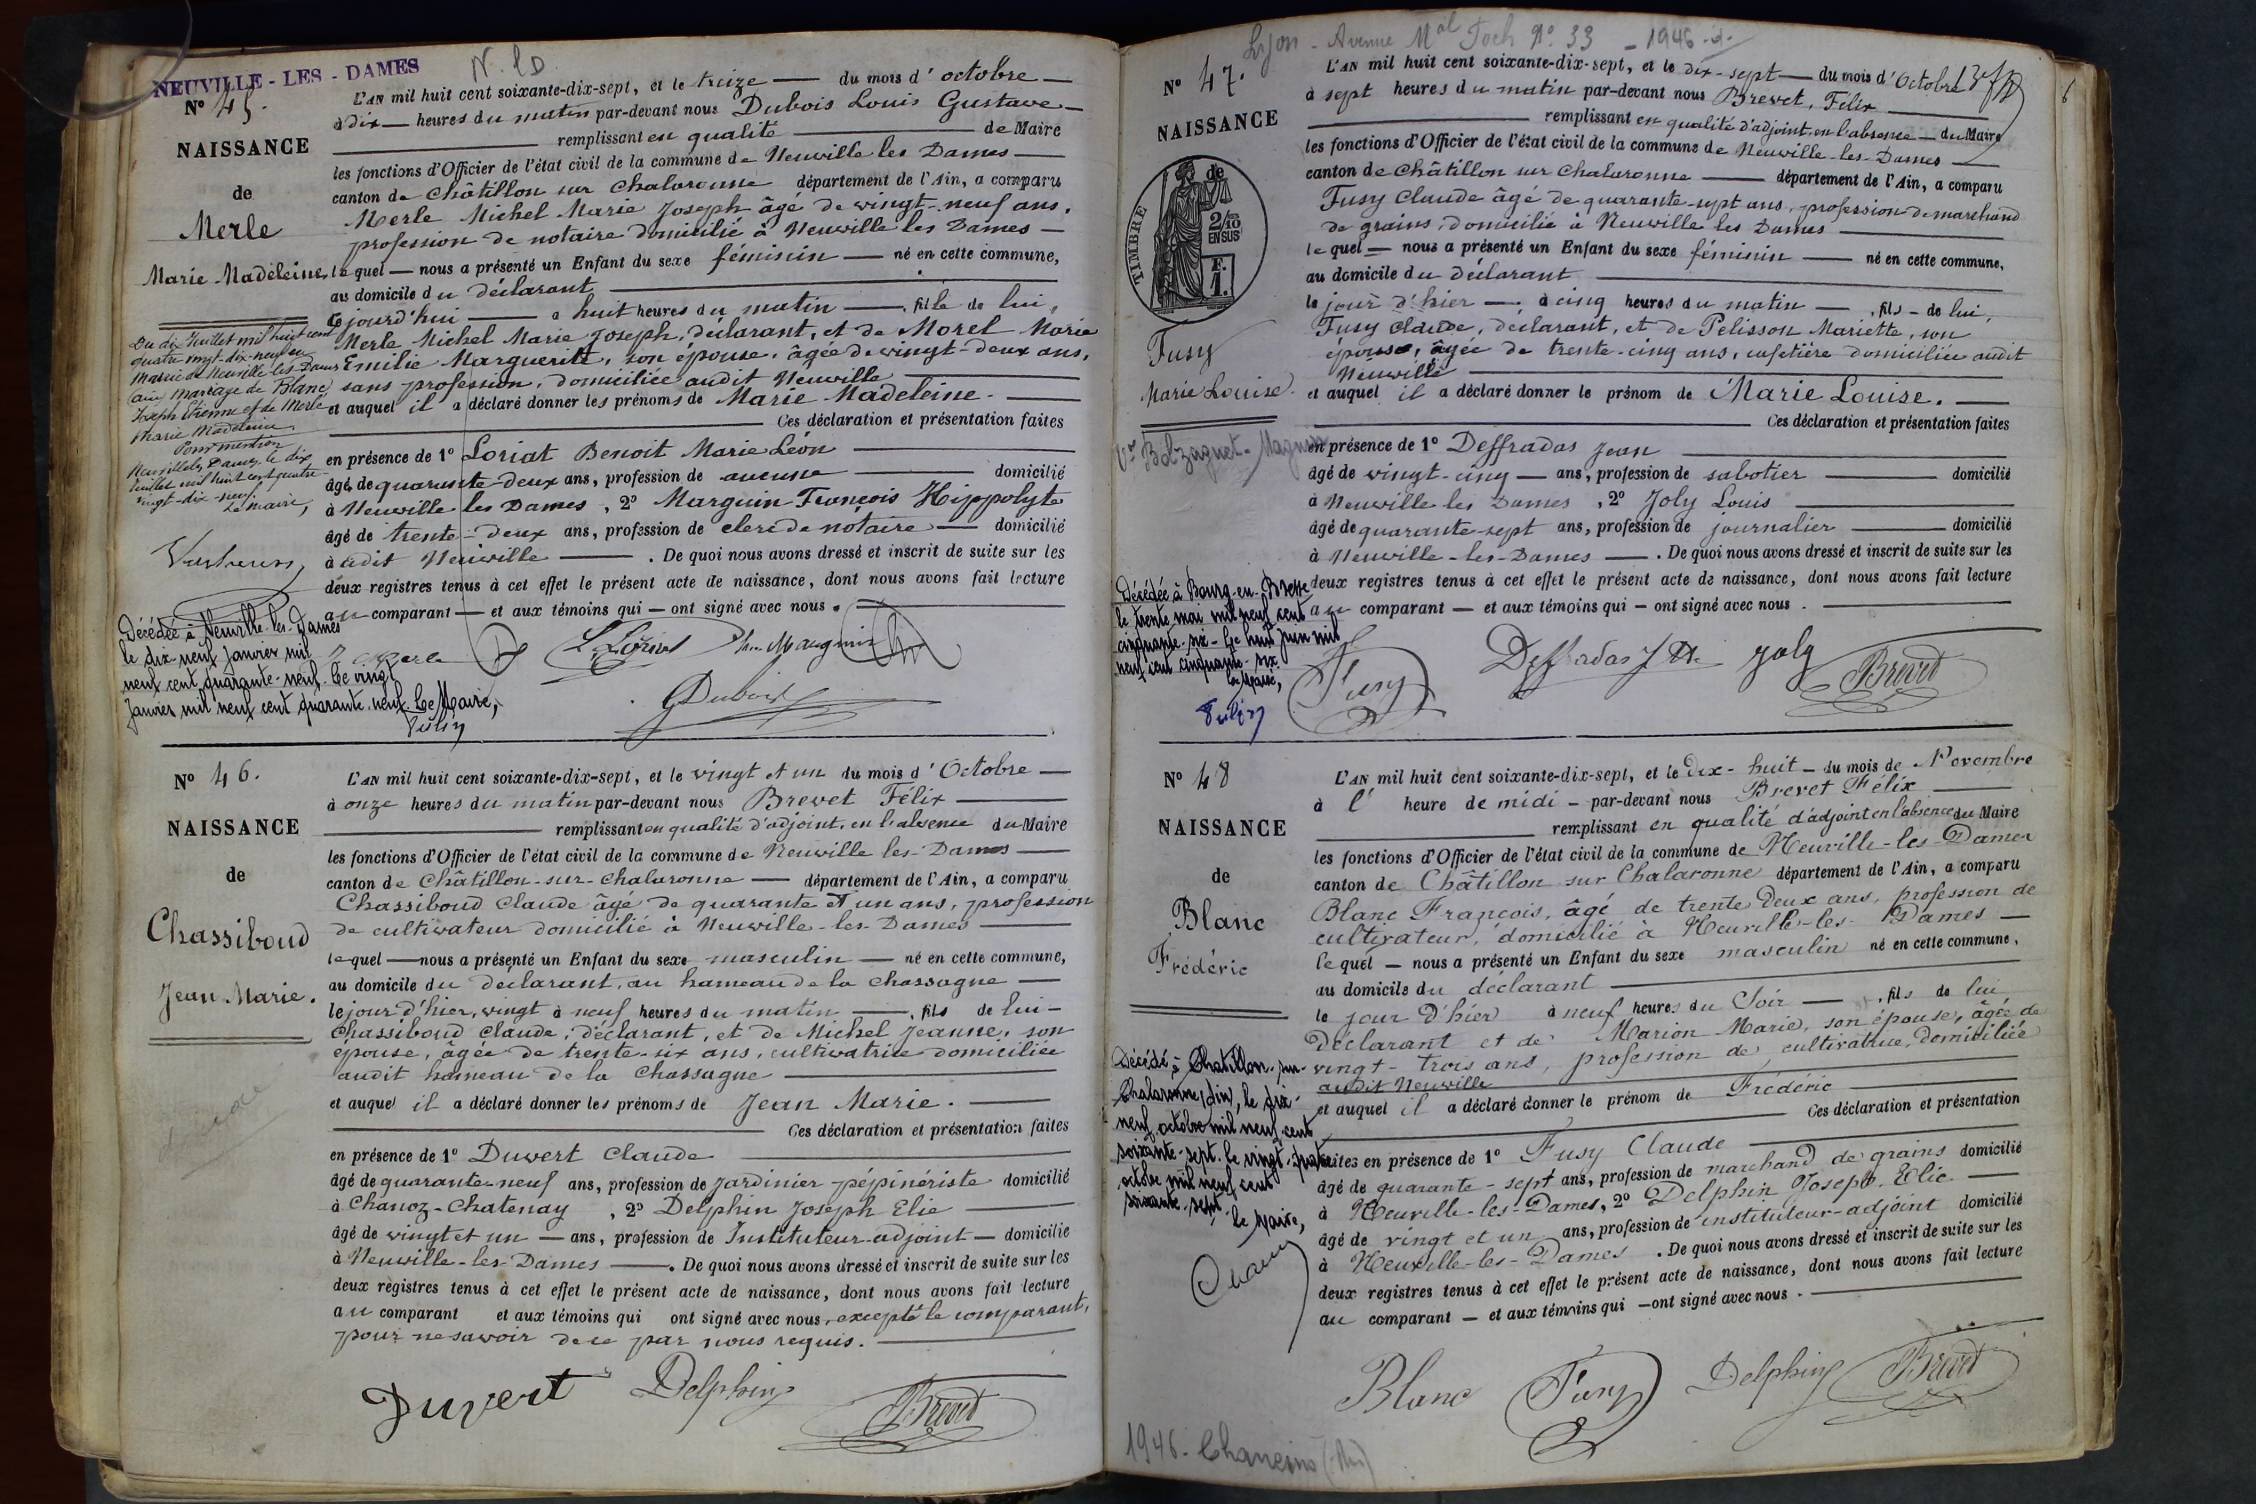 NEUVILLE - LES - DAMES
N. l D.
N° 45.
NAISSANCE
de
Merle
Marie Madeleine,
Du dix Juillet mil huit cent
quatre vingt-dix-neuf en
Mairie de Neuville-les-Dames
mariage de Blanc
Joseph Etienne et de Merle
Marie Madeleine
Pour mention
Neuville les Dames le dix
Juillet mil huit cent quatre-
vingt-dix-neuf.
Le maire,
Décédée à Neuville-les-Dames
le dix neuf janvier mil
neuf cent quarante-neuf. Le vingt
janvier mil neuf cent quarante-neuf. Le Maire,
L'AN mil huit cent soixante-dix-sept, et le treize — du mois d' octobre —
à dix — heures du matin par-devant nous Dubois Louis Gustave —
remplissant en qualité — de Maire
les fonctions d'Officier de l'état civil de la commune de Neuville les Dames —
canton de Châtillon sur Chalaronne département de l'Ain, a comparu
Merle Michel Marie Joseph âgé de vingt-neuf ans,
profession de notaire domicilié à Neuville les Dames —
lequel — nous a présenté un Enfant du sexe féminin — né en cette commune,
au domicile du déclarant —
Cejourd'hui — a huit heures du matin — , fille de lui,
Merle Michel Marie Joseph, déclarant, et de Morel Marie
Emilie Marguerite, son épouse, âgée de vingt-deux ans,
sans profession, domiciliée audit Neuville —
et auquel il a déclaré donner les prénoms de Marie Madeleine. —
Ces déclaration et présentation faites
en présence de 1° Loriat Benoit Marie Léon —
âgé de quarante deux ans, profession de aucune — domicilié
à Neuville les Dames , 2° Marguin François Hippolyte
âgé de trente-deux ans, profession de clerc de notaire — domicilié
à adit Neuville — . De quoi nous avons dressé et inscrit de suite sur les
deux registres tenus à cet effet le présent acte de naissance, dont nous avons fait lecture
au comparant — et aux témoins qui — ont signé avec nous . —
Dubois
N° 46.
NAISSANCE
de
Chassiboud
Jean Marie.
L'AN mil huit cent soixante-dix-sept, et le vingt et un du mois d' Octobre —
à onze heures du matin par-devant nous Brevet Félix —
remplissant en qualité d'adjoint, en l'absence du Maire
les fonctions d'Officier de l'état civil de la commune de Neuville les-Dames —
canton de Châtillon-sur-Chalaronne — département de l'Ain, a comparu
Chassiboud Claude âgé de quarante et un ans, profession
de cultivateur domicilié à Neuville-les-Dames —
lequel — nous a présenté un Enfant du sexe masculin — né en cette commune,
au domicile du déclarant, au hameau de la chassagne —
le jour d'hier, vingt à neuf heures du matin — , fils de lui-
Chassiboud Claude, déclarant, et de Michel Jeanne, son
épouse, âgée de trente-six ans, cultivatrice domiciliée
audit hameau de la Chassagne —
et auquel il a déclaré donner les prénoms de Jean Marie. —
Ces déclaration et présentation faites
en présence de 1° Duvert Claude —
âgé de quarante-neuf ans, profession de Jardinier-pépinériste domicilié
à Chanoz-Chatenay , 2° Delphin Joseph Elie —
âgé de vingt et un — ans, profession de Instituteur-adjoint — domicilié
à Neuville-les-Dames — . De quoi nous avons dressé et inscrit de suite sur les
deux registres tenus à cet effet le présent acte de naissance, dont nous avons fait lecture
au comparant et aux témoins qui ont signé avec nous, excepté le comparant,
pour ne savoir de ce par nous requis. —
Duvert Delphin Brevet
Lyon - Avenue Mal Foch N° 33 - 1946
6
N° 47.
NAISSANCE
de
TIMBRE
2/10
EN SUS
F.
1.
Fusy
Marie Louise.
Décédée à Bourg-en-Bresse
le trente mai mil neuf cent
cinquante-six - Le huit juin mil
neuf cent cinquante-six
Le Maire,
L'AN mil huit cent soixante-dix-sept, et le dix-sept — du mois d' Octobre
à sept heures du matin par-devant nous Brevet, Félix —
remplissant en qualité d'adjoint, en l'absence — du Maire
les fonctions d'Officier de l'état civil de la commune de Neuville-les-Dames —
canton de Châtillon sur Chalaronne — département de l'Ain, a comparu
Fusy Claude âgé de quarante-sept ans, profession de marchand
de grains, domicilié à Neuville les Dames —
lequel — nous a présenté un Enfant du sexe féminin — né en cette commune,
au domicile du déclarant —
le jour d'hier — à cinq heures du matin — , fils - de lui,
Fusy Claude, déclarant, et de Pelisson Mariette, son
épouse, âgée de trente-cinq ans, cafetière domiciliée audit
Neuville —
et auquel il a déclaré donner le prénom de Marie Louise. —
Ces déclaration et présentation faites
en présence de 1° Deffradas Jean —
âgé de vingt-cinq — ans, profession de sabotier — domicilié
à Neuville les Dames , 2° Joly Louis —
âgé de quarante-sept ans, profession de journalier — domicilié
à Neuville-les-Dames — . De quoi nous avons dressé et inscrit de suite sur les
deux registres tenus à cet effet le présent acte de naissance, dont nous avons fait lecture
au comparant — et aux témoins qui — ont signé avec nous . —
Fusy Deffradas Joly Brevet
N° 48
NAISSANCE
de
Blanc
Frédéric
Décédé à Chatillon-sur-
Chalaronne (Ain), le dix-
neuf octobre mil neuf cent
soixante-sept. Le vingt-
octobre mil neuf cent
soixante-sept
Le Maire,
L'AN mil huit cent soixante-dix-sept, et le dix-huit — du mois de Novembre
à l' heure de midi — par-devant nous Brevet Félix —
remplissant en qualité d'adjoint en l'absence du Maire
les fonctions d'Officier de l'état civil de la commune de Neuville-les-Dames
canton de Châtillon sur Chalaronne département de l'Ain, a comparu
Blanc François, âgé de trente deux ans, profession de
cultivateur, domicilié à Neuville-les-Dames —
lequel — nous a présenté un Enfant du sexe masculin né en cette commune,
au domicile du déclarant —
le jour d'hier à neuf heures du Soir — , fils de lui
déclarant et de Marion Marie, son épouse, âgée de
vingt-trois ans, profession de cultivatrice, domiciliée
audit Neuville —
et auquel il a déclaré donner le prénom de Frédéric —
Ces déclaration et présentation
faites en présence de 1° Fusy Claude —
âgé de quarante-sept ans, profession de marchand de grains domicilié
à Neuville-les-Dames, 2° Delphin Joseph Elie —
âgé de vingt et un ans, profession de instituteur-adjoint domicilié
à Neuville-les-Dames . De quoi nous avons dressé et inscrit de suite sur les
deux registres tenus à cet effet le présent acte de naissance, dont nous avons fait lecture
au comparant — et aux témoins qui — ont signé avec nous . —
Blanc Fusy Delphin Brevet
1946 -